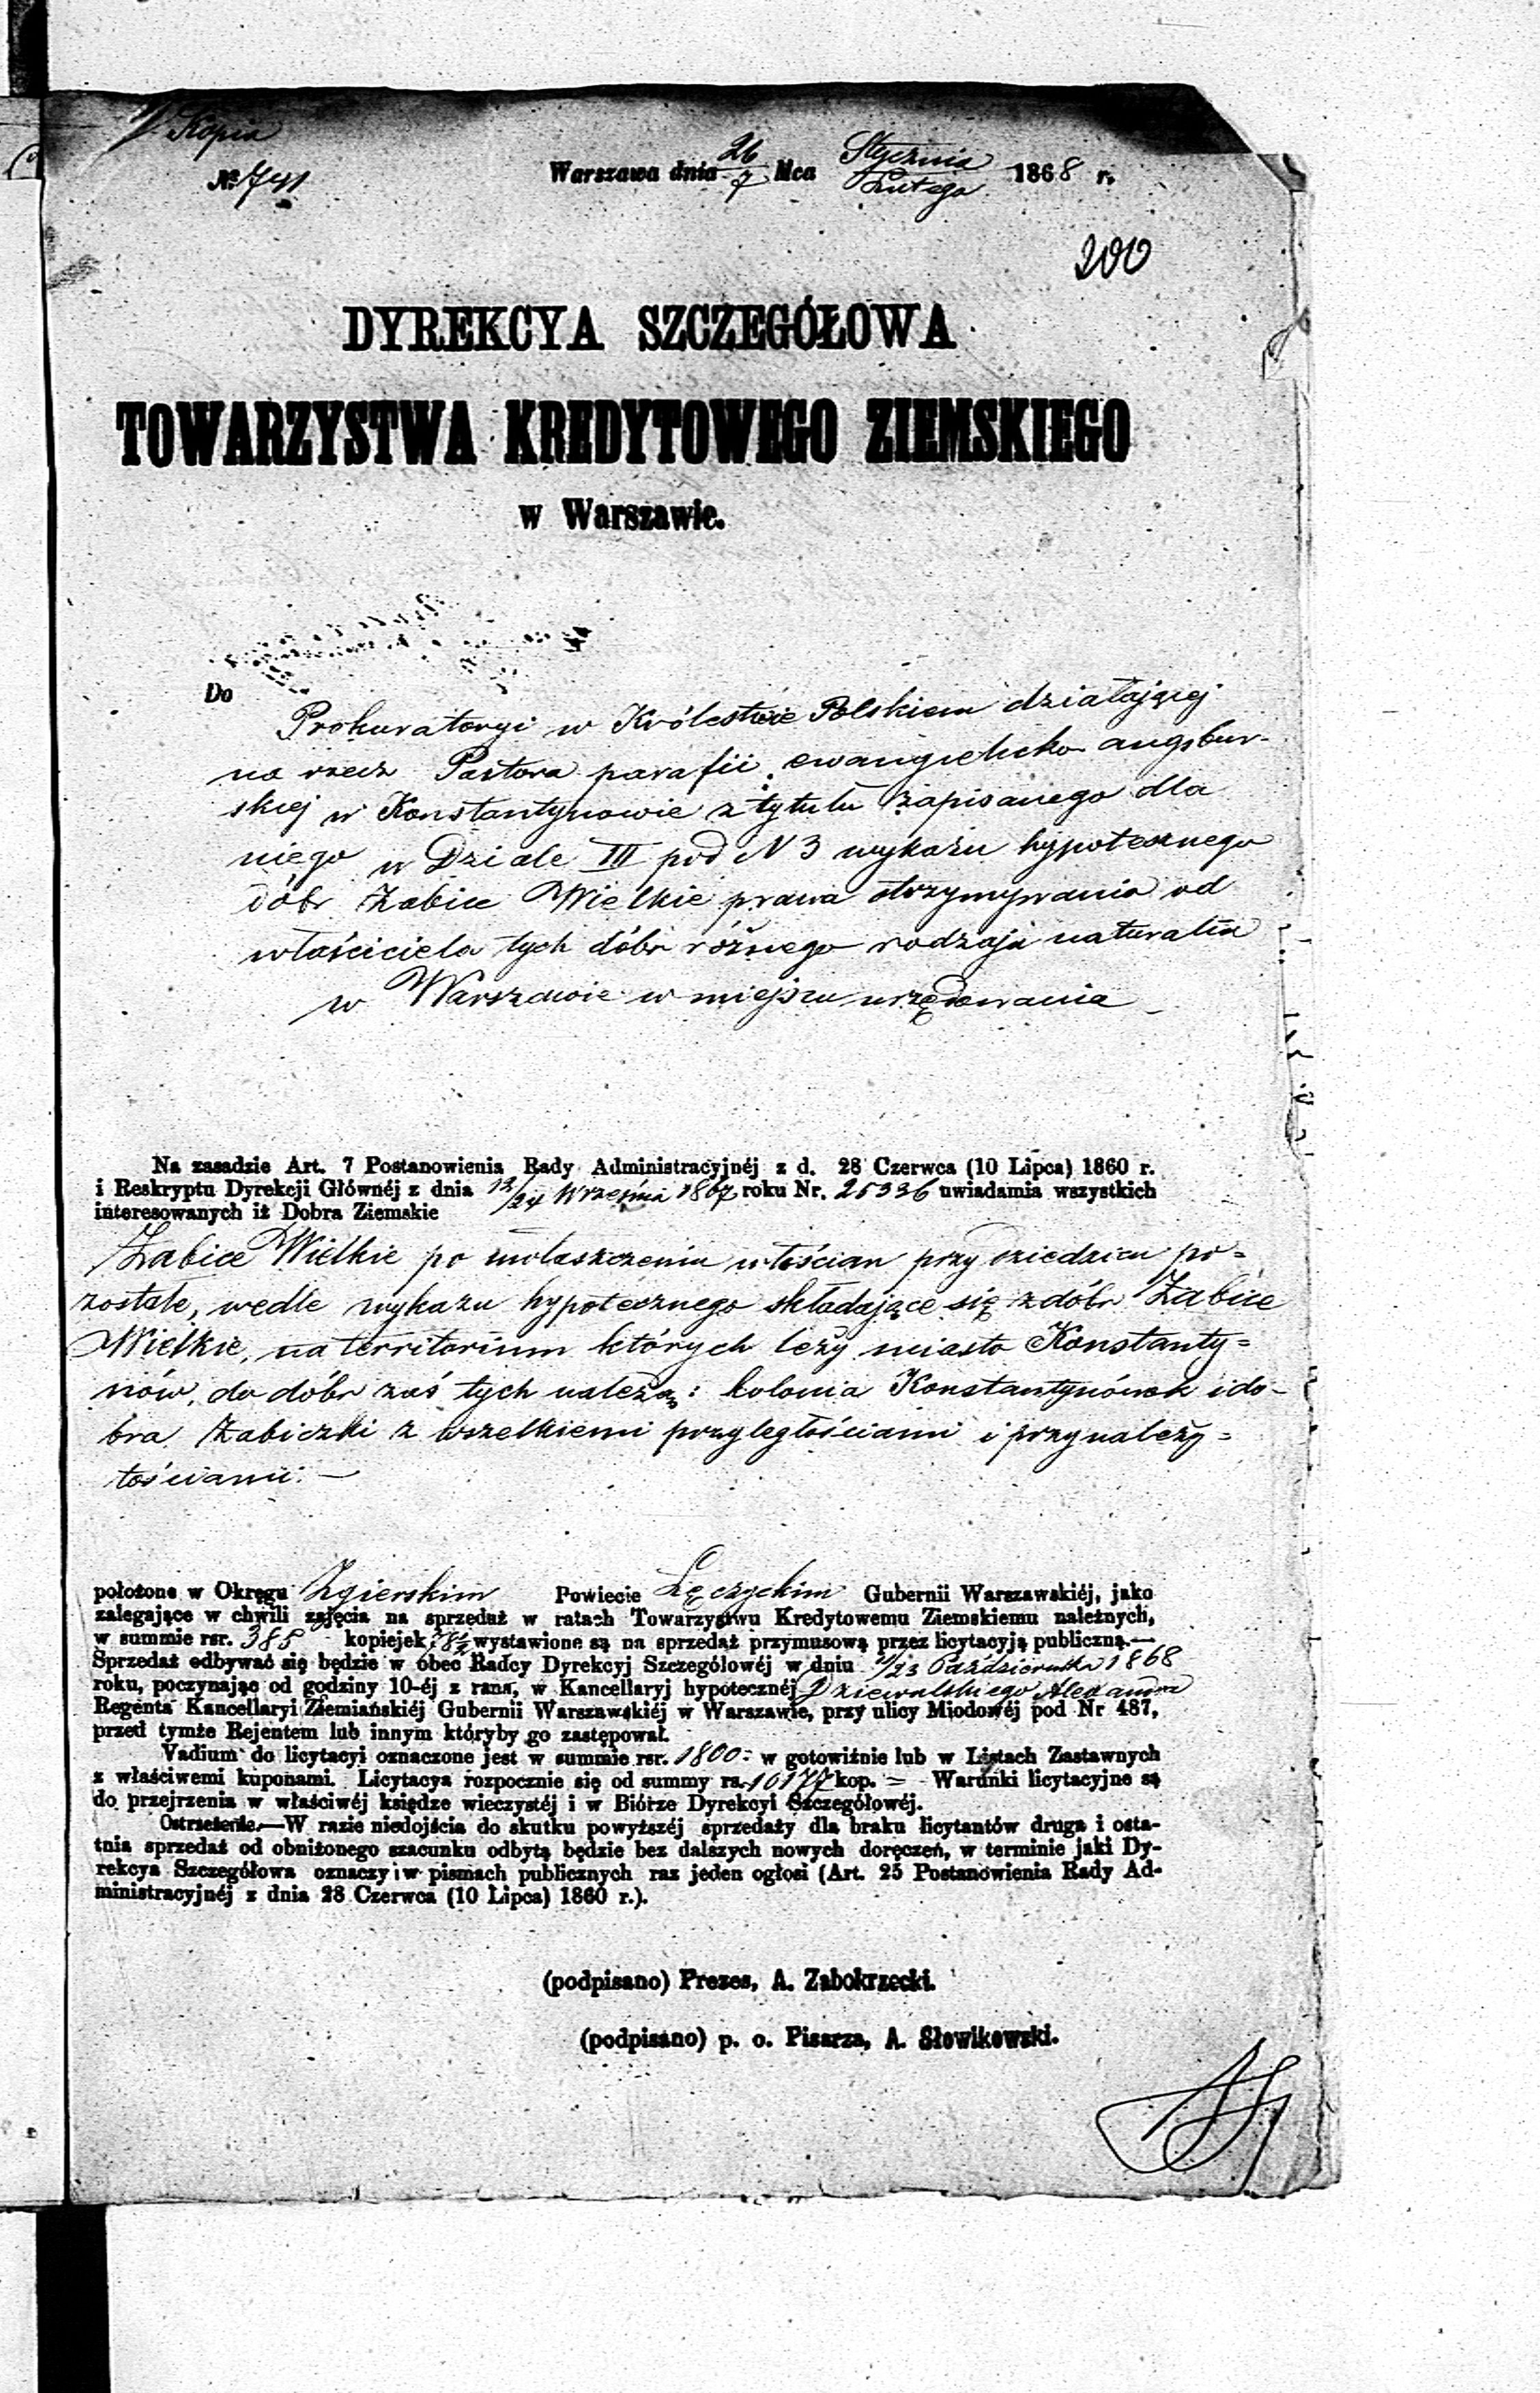 Kopia
№ 741 Warszawa dnia 26/7 Mca Stycznia/Lutego 1868 r.
200
DYREKCYA SZCZEGÓŁOWA
TOWARZYSTWA KREDYTOWEGO ZIEMSKIEGO
w Warszawie.
Do
Prokuratoryi w Królestwie Polskiem działającej
na rzecz Pastora parafii ewangielicko augsbur-
skiej w Konstantynowie z tytułu zapisanego dla
niego w Dziale III pod N 3 wykazu hypotecznego
dóbr Żabice Wielkie prawa otrzymywania od
właściciela tych dóbr różnego rodzaju naturalia
w Warszawie w miejscu urzędowania
Na zasadzie Art. 7 Postanowienia Rady Administracyjnéj z d. 28 Czerwca (10 Lipca) 1860 r.
i Reskryptu Dyrekcji Głównéj z dnia 12/24 Września 1867 roku Nr. 25336 uwiadamia wszystkich
interesowanych iż Dobra Ziemskie
Żabice Wielkie po uwłaszczeniu włościan przy dziedzicu po=
zostałe, wedle wykazu hypotecznego składające się z dóbr Żabice
Wielkie, na territorium których leży miasto Konstanty=
nów, do dóbr zaś tych należą: kolonia Konstantynówek i do-
bra Żabiczki z wszelkiemi przyległościami i przynależy=
tościami. —
położone w Okręgu Zgierskim Powiecie Łęczyckim Gubernii Warszawskiéj, jako
zalegające w chwili zajęcia na sprzedaż w ratach Towarzystwu Kredytowemu Ziemskiemu należnych,
w summie rsr. 385 kopiejek 78½ wystawione są na sprzedaż przymusową przez licytacyją publiczną.—
Sprzedaż odbywać się będzie w obec Radcy Dyrekcyj Szczegółowéj w dniu 11/23 Października 1868
roku, poczynając od godziny 10-éj z rana, w Kancellaryj hypotecznéj Dziewulskiego Alexandra
Regenta Kancellaryi Ziemiańskiéj Gubernii Warszawskiéj w Warszawie, przy ulicy Miodowéj pod Nr 487,
przed tymże Rejentem lub innym któryby go zastępował.
Vadium do licytacyi oznaczone jest w summie rsr. 1800= w gotowiźnie lub w Listach Zastawnych
z właściwemi kuponami. Licytacya rozpocznie się od summy rs. 10177 kop. = Warunki licytacyjne są
do przejrzenia w właściwéj księdze wieczystéj i w Biórze Dyrekcyi Szczegółowéj.
Ostrzeżenie.—W razie niedojścia do skutku powyższéj sprzedaży dla braku licytantów druga i osta-
tnia sprzedaż od obniżonego szacunku odbytą będzie bez dalszych nowych doręczeń, w terminie jaki Dy-
rekcya Szczegółowa oznaczy i w pismach publicznych raz jeden ogłosi (Art. 25 Postanowienia Rady Ad-
ministracyjnéj z dnia 28 Czerwca (10 Lipca) 1860 r.).
(podpisano) Prezes, A. Zabokrzecki.
(podpisano) p. o. Pisarza, A. Słowikowski.